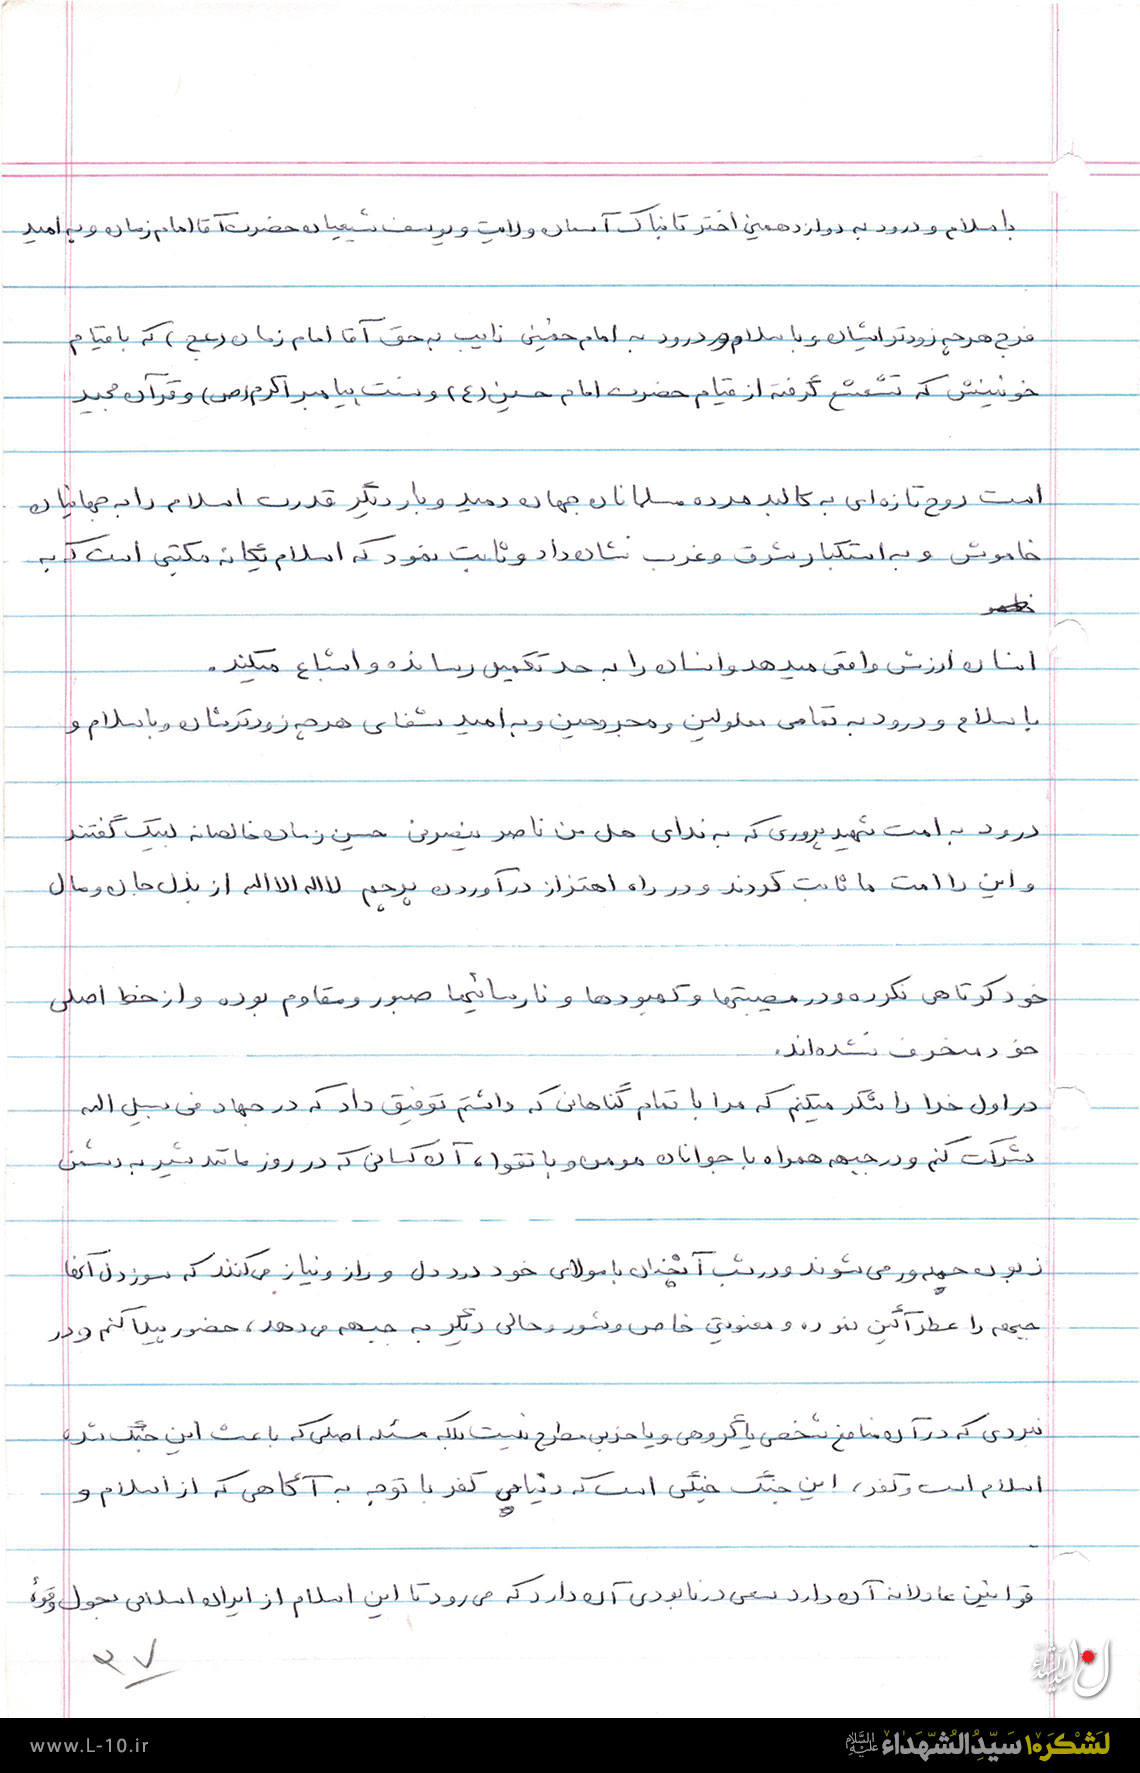 با سلام و درود به دوازدهمین اختر تابناک آسمان ولایت و یوسف شیعیان حضرت آقا امام زمان و به امید
فرج هرچه زودتر ایشان و با سلام و درود به امام خمینی نایب به حق آقا امام زمان (عج) که با قیام
خونینش که تشعشع گرفته از قیام حضرت امام حسین (ع) و سنت پیامبر اکرم (ص) و قرآن مجید
است روح تازه‌ای به کالبد مرده مسلمانان جهان دمید و بار دیگر قدرت اسلام را به جهانیان
خاموش و به استکبار شرق و غرب نشان داد و ثابت نمود که اسلام یگانه مکتبی است که به
انسان ارزش واقعی میدهد و انسان را به حد تکمیل رسانده و اشباع میکند.
با سلام و درود به تمامی معلولین و مجروحین و به امید شفای هرچه زودترشان و با سلام و
درود به امت شهید پروری که به ندای هل من ناصر ینصرنی حسین زمان خالصانه لبیک گفتند
و این را امت ما ثابت کردند و در راه اهتزاز درآوردن پرچم لا اله الا الله از بذل جان و مال
خود کوتاهی نکرده و در مصیبتها و کمبودها و نارسائیها صبور و مقاوم بوده و از خط اصلی
خود منحرف نشده‌اند.
در اول خدا را شکر میکنم که مرا با تمام گناهانی که داشتم توفیق داد که در جهاد فی سبیل الله
شرکت کنم و در جبهه همراه با جوانان مومن و با تقوا، آن کسانی که در روز مانند شیر به دشمن
زبون حمله ور می شوند و در شب آنچنان با مولای خود درد دل و راز و نیاز می کنند که سوز دل آنها
جبهه را عطرآگین نموده و معنویتی خاص و شور و حالی دیگر به جبهه می دهد، حضور پیدا کنم و در
نبردی که در آن منافع شخصی یا گروهی و یا حزبی مطرح نیست بلکه مسئله اصلی که باعث این جنگ شده
اسلام است و کفر، این جنگ جنگی است که دنیای کفر با توجه به آگاهی که از اسلام و
قوانین عادلانه آن دارد سعی در نابودی آن دارد که می رود تا این اسلام از ایران اسلامی بحول و قوه
۳۷
لشکر۱۰ سیدالشهداء علیه السلام
www.L-10.ir